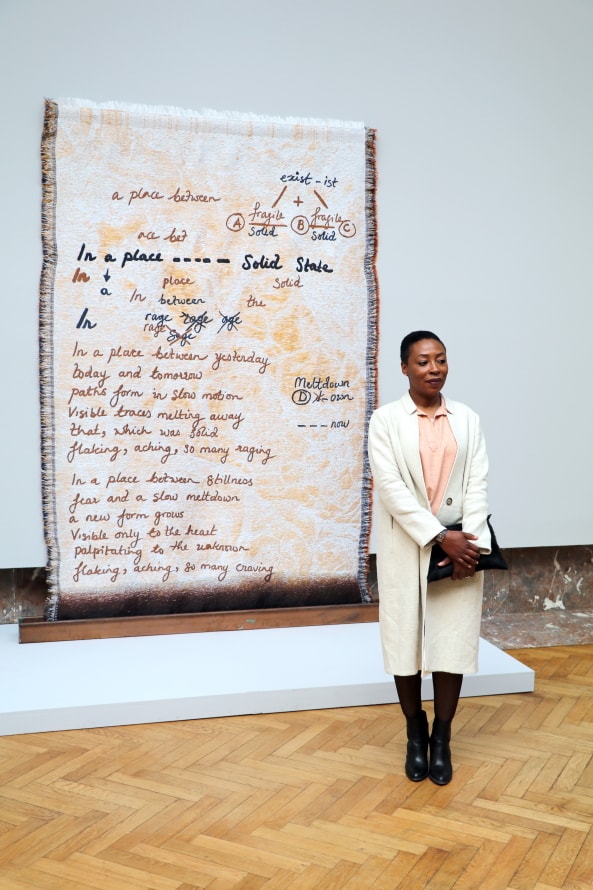 exist-ist
a place between
+
A fragile B fragile C
solid solid
ace bet
In a place ----- Solid State
In place Solid
a In between the
In rage rage age
rage Sage
In a place between yesterday
today and tomorrow
paths form in slow motion
Visible traces melting away
that, which was solid
flaking, aching, so many raging
Meltdown
D own
--- now
In a place between stillness
fear and a slow meltdown
a new form grows
Visible only to the heart
palpitating to the unknown
flaking, aching, so many craving